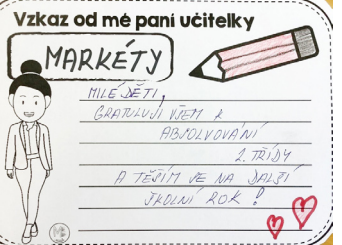 Vzkaz od mé paní učitelky
MARKÉTY
MILÉ DĚTI,
GRATULUJI VŠEM K
ABSOLVOVÁNÍ
2. TŘÍDY
A TĚŠÍM SE NA DALŠÍ
ŠKOLNÍ ROK!